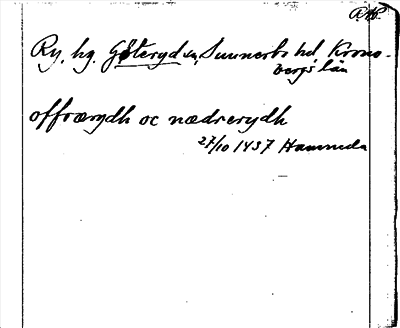 RAP.
Ry, hg. Göteryd sn, Sunnerbo hd Krono-
bergs län
offrærydh oc nædrerydh
27/10 1437 Hamneda